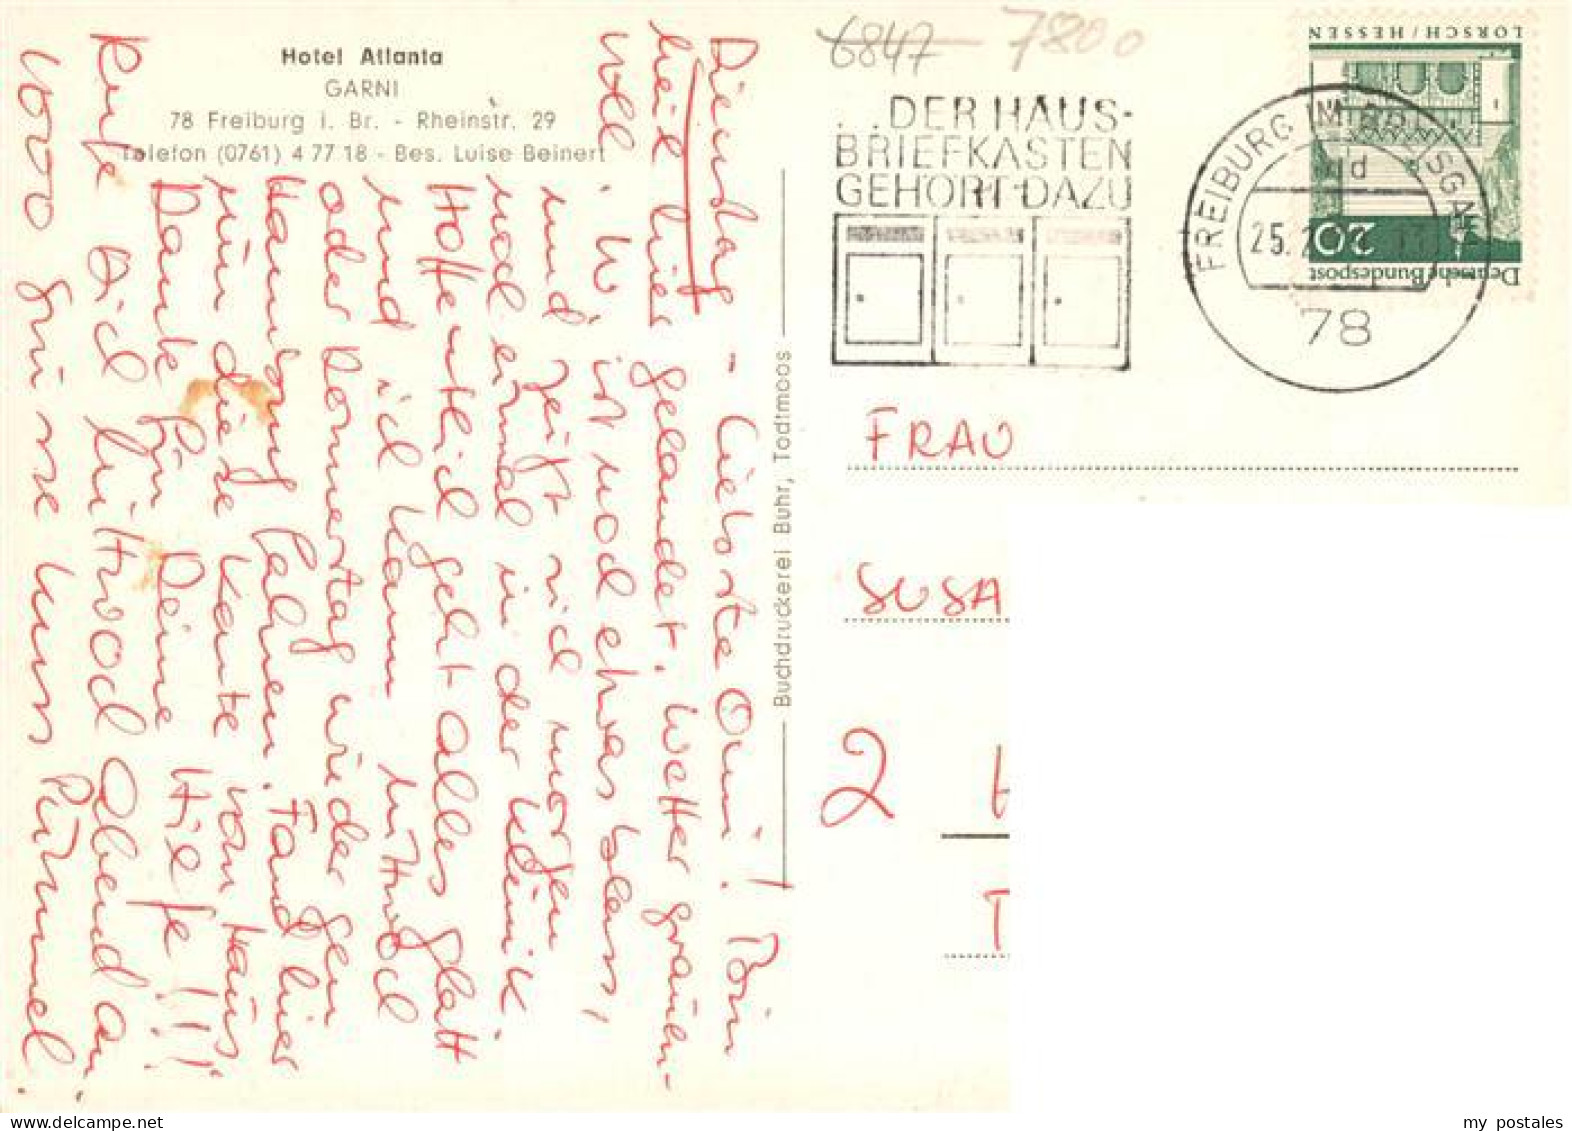 Hotel Atlanta
GARNI
78 Freiburg i. Br. - Rheinstr. 29
Telefon (0761) 4 77 18 - Bes. Luise Beinert
Dienstag - Liebste Omi! Bin
heil hier gelandet. Wetter grauen-
voll
ist noch etwas blass,
und zeigt sich morgen
noch einmal in der Klinik.
Hoffentlich geht alles glatt
und ich kann Mittwoch
oder Donnerstag wieder gen
Hamburg fahren. Fand hier
nun diese Karte von Haus
Danke für Deine Hilfe!!!
Rufe Dich Mittwoch Abend an
1000 Grüsse Kuss Pummel.
Buchdruckerei Buhr, Todtmoos
6847 7800
...DER HAUS-
BRIEFKASTEN
GEHÖRT DAZU
FREIBURG IM BREISGAU
25.
78
LORSCH/HESSEN
20
Deutsche Bundespost
FRAU
SUSA
2
my postales